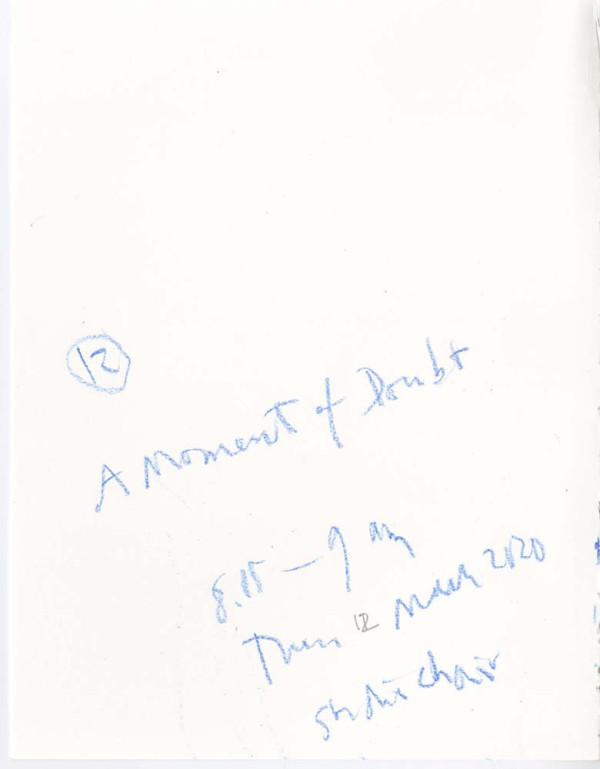 12
A Moment of Doubt
8.15 – 9 am
Thurs 12 March 2020
studio chair